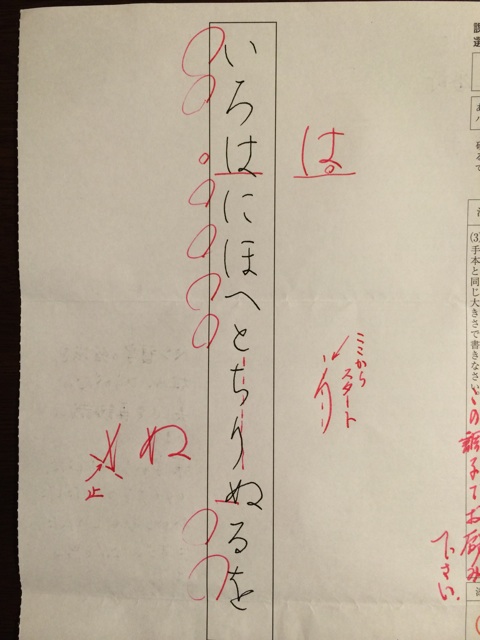 (3)手本と同じ大きさで書きなさい
この調子でお励み
下さい.
は
ここから
スタート
り
いろはにほへとちりぬるを
ぬ
止